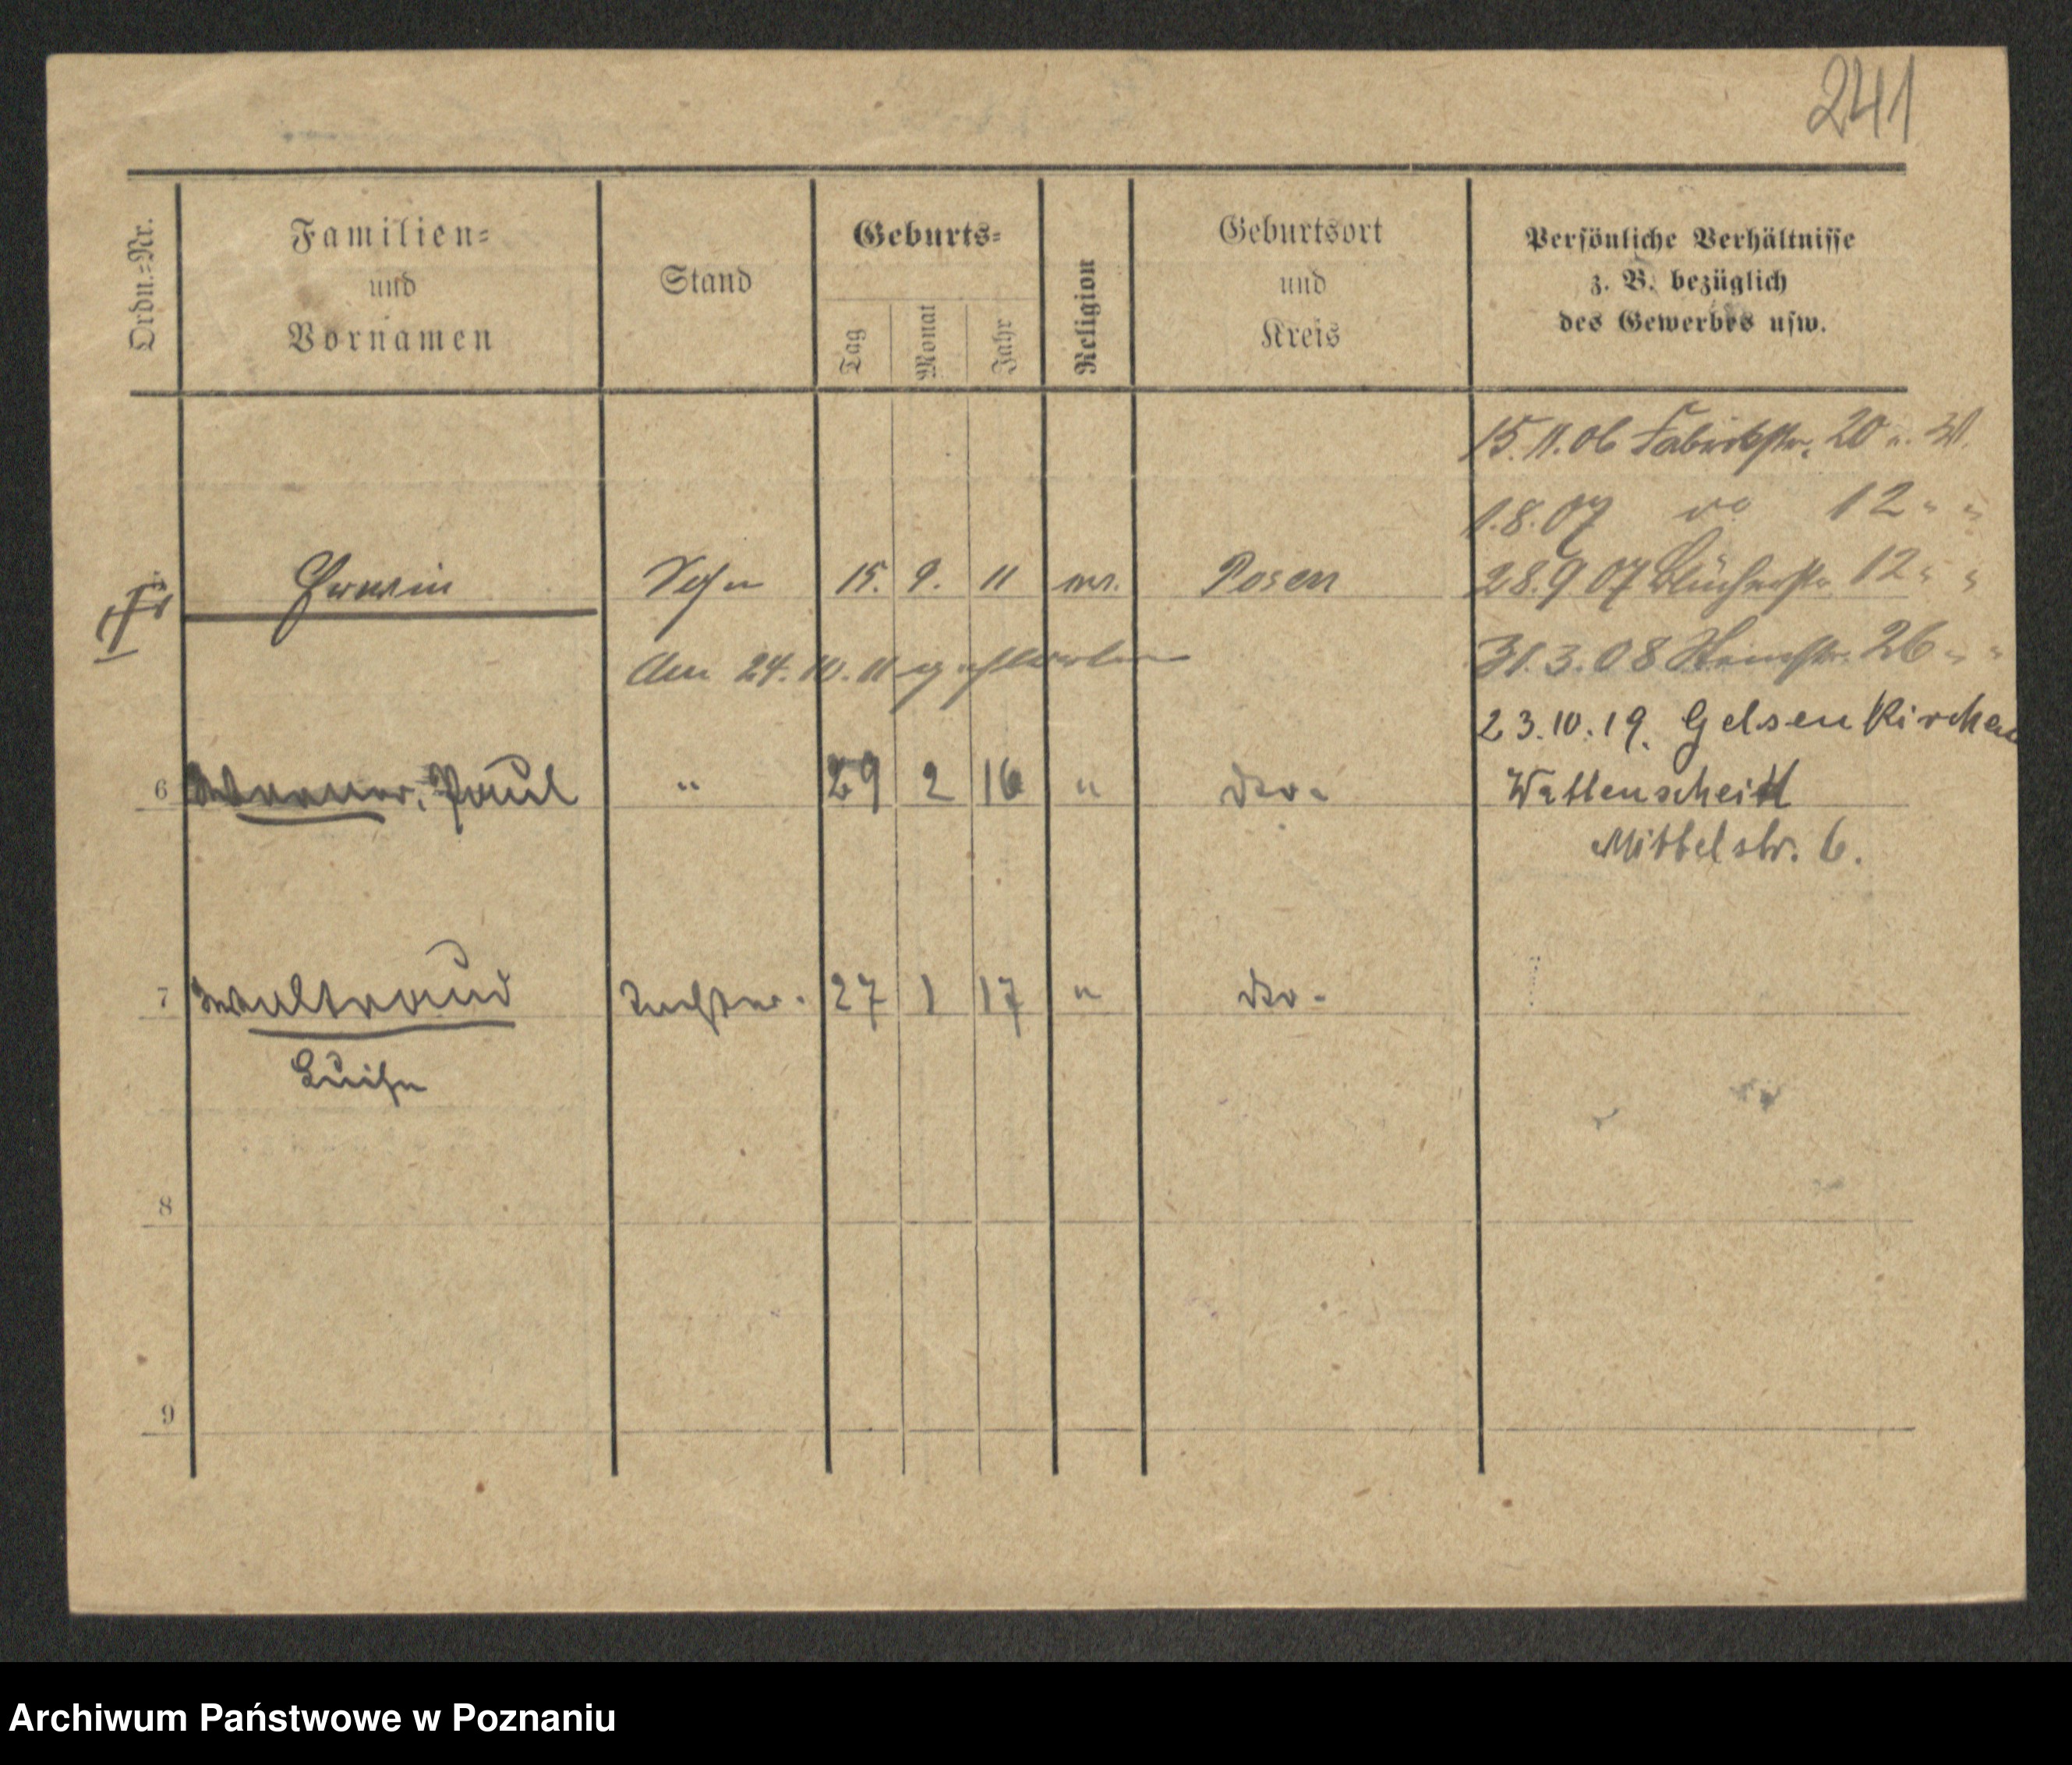 241
Ordn.-Nr.
Familien-
und
Vornamen
Stand
Geburts-
Tag
Monat
Jahr
Religion
Geburtsort
und
Kreis
Persönliche Verhältnisse
z. B. bezüglich
des Gewerbes usw.
15.11.06 Fabrikstr. 20
1.8.07 do 12 " "
Erwin Sohn 15. 9. 11 ev. Posen 28.9 07 Blücherstr. 12 " "
Am 24.10.11 gestorben
31.3.08 26 " "
23.10.19. Gelsenkirchen
6 Werner, Paul " 29 2 16 " dto. Wattenscheid
Mittelstr. 6.
7 Waltraud Tochter. 27 1 17 " dto.
Luise
8
9
Archiwum Państwowe w Poznaniu